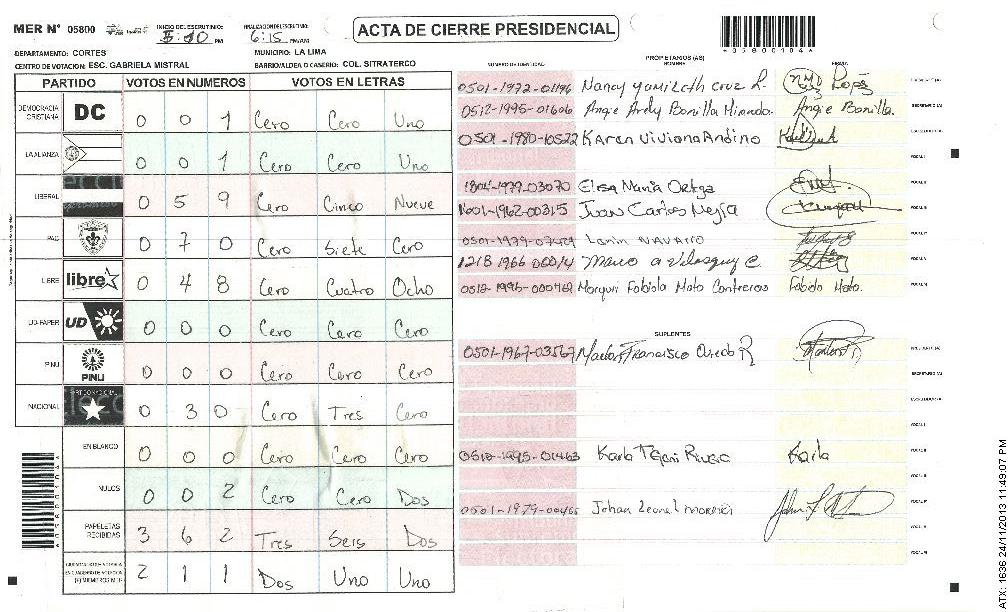 MER Nº 05800
INICIO DEL ESCRUTINIO: 5:10 PM
FINALIZACION DEL ESCRUTINIO: 6:15 PM
ACTA DE CIERRE PRESIDENCIAL
*05800104*
DEPARTAMENTO: CORTES
MUNICIPIO: LA LIMA
CENTRO DE VOTACION: ESC. GABRIELA MISTRAL
BARRIO/ALDEA O CASERIO: COL. SITRATERCO
PARTIDO VOTOS EN NUMEROS VOTOS EN LETRAS
DEMOCRACIA CRISTIANA DC 0 0 1 Cero Cero Uno
LA ALIANZA 0 0 1 Cero Cero Uno
LIBERAL 0 5 9 Cero Cinco Nueve
PAC 0 7 0 Cero Siete Cero
LIBRE libre 0 4 8 Cero Cuatro Ocho
UD-FAPER UD 0 0 0 Cero Cero Cero
PINU PINU 0 0 0 Cero Cero Cero
NACIONAL 0 3 0 Cero Tres Cero
EN BLANCO 0 0 0 Cero Cero Cero
NULOS 0 0 2 Cero Cero Dos
PAPELETAS RECIBIDAS 3 6 2 Tres Seis Dos
2 1 1 Dos Uno Uno
NUMERO DE IDENTIDAD PROPIETARIOS (AS) NOMBRE FIRMA
0501-1972-01196 Nancy Yamileth Cruz L.
0512-1995-01606 Angie Arely Bonilla Miranda. Angie Bonilla.
0501-1980-10522 Karen Viviana Andino
1804-1979-03070 Elsa Maria Ortega
1601-1962-00315 Juan Carlos Mejia
0501-1979-07429 NAVARRO
1218 1966 00014 Mario a Velasquez C.
Fabiola Mato Contreras Fabiola Mato.
SUPLENTES
0501-1967-03567 Francisco
0512-1995-01463 Karla Karla
0501-1979-00465 Johan Leonel
ATX: 1636 24/11/2013 11:49:07 PM